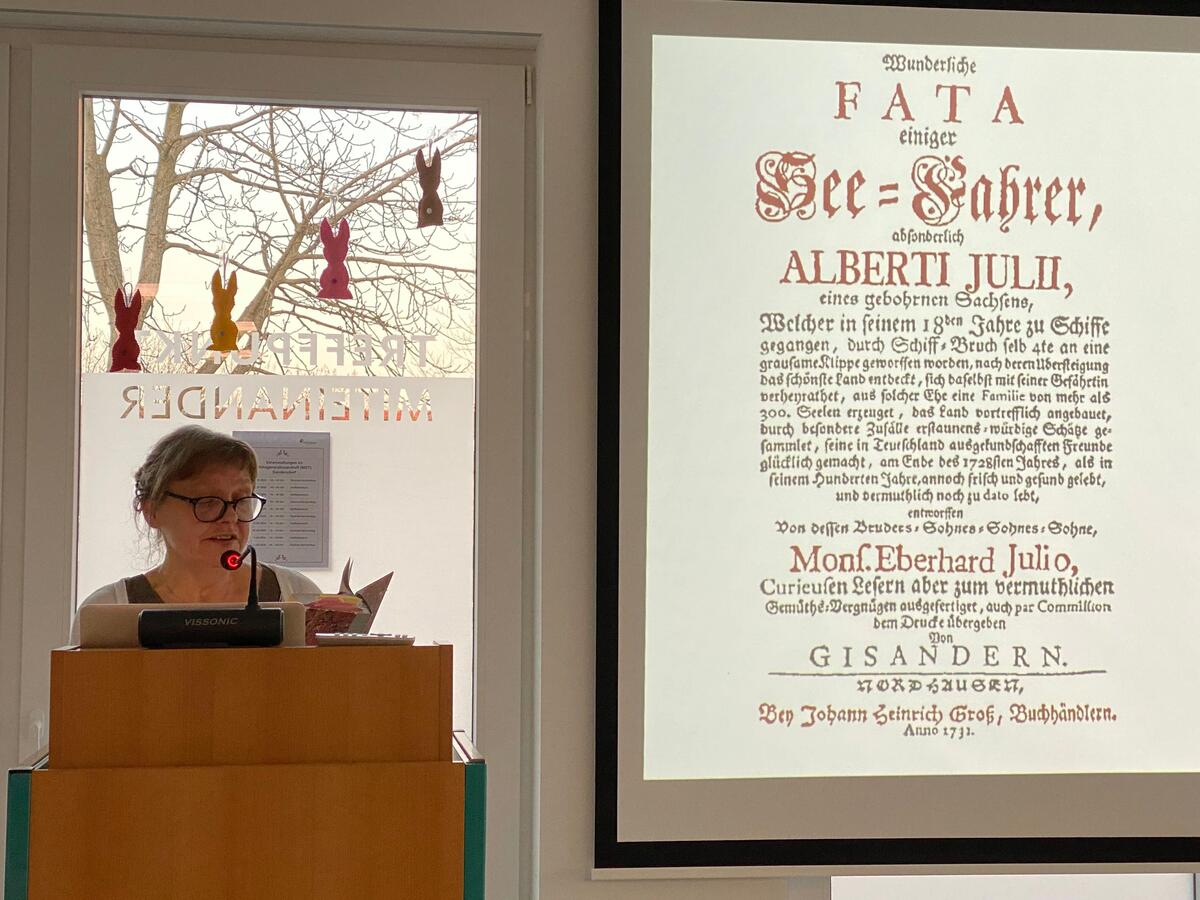 TREFFPUNKT
MITEINANDER
Veranstaltungen im
VISSONIC
Wunderliche
FATA
einiger
See=Fahrer,
absonderlich
ALBERTI JULII,
eines gebohrnen Sachsens,
Welcher in seinem 18den Jahre zu Schiffe
gegangen, durch Schiff=Bruch selb 4te an eine
grausame Klippe geworffen worden, nach deren Übersteigung
das schönste Land entdeckt, sich daselbst mit seiner Gefährtin
verheyrathet, aus solcher Ehe eine Familie von mehr als
300. Seelen erzeuget, das Land vortrefflich angebauet,
durch besondere Zufälle erstaunens=würdige Schätze ge=
sammlet, seine in Teutschland ausgekundschafften Freunde
glücklich gemacht, am Ende des 1728sten Jahres, als in
seinem Hunderten Jahre, annoch frisch und gesund gelebt,
und vermuthlich noch zu dato lebt,
entworffen
Von dessen Bruders=Sohnes=Sohnes=Sohne,
Mons. Eberhard Julio,
Curieusen Lesern aber zum vermuthlichen
Gemüths=Vergnügen ausgefertiget, auch par Commission
dem Drucke übergeben
Von
GISANDERN.
NORDHAUSEN,
Bey Johann Heinrich Groß, Buchhändlern.
Anno 1731.